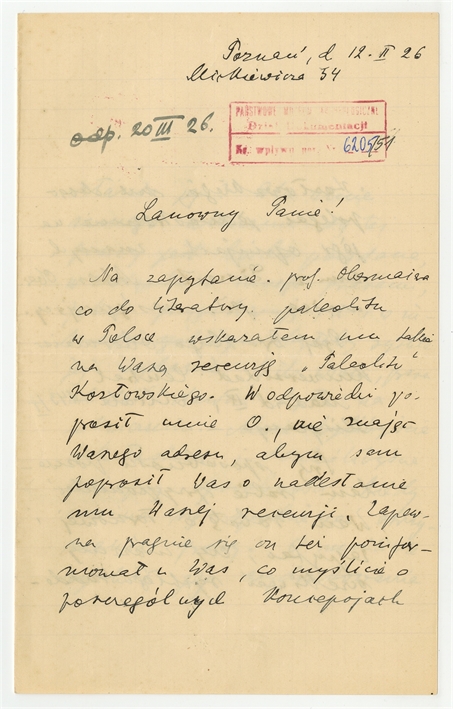 Poznań, d 12-II 26
Mickiewicza 34
odp. 20 III 26.
PAŃSTWOWE MUZEUM ARCHEOLOGICZNE
Dział Dokumentacji
Nr. wpływu 6205/51
Szanowny Panie!
Na zapytanie prof. Obermaiera
co do literatury paleolitu
w Polsce wskazałem mu także
na Waszą recenzję „Paleolitu"
Kozłowskiego. W odpowiedzi po-
prosił mnie O., nie znając
Waszego adresu, abym sam
poprosił Was o nadesłanie
mu Waszej recenzji. Zapew-
na pragnie się on też poinfor-
mować u Was, co myślicie o
poszczególnych koncepcjach